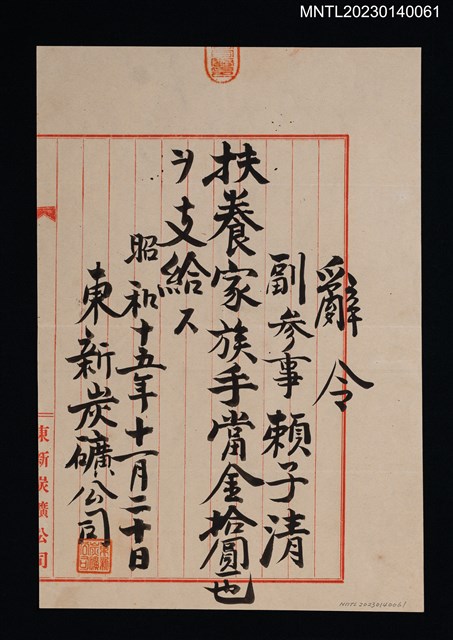 MNTL20230140061
辭令
副参事 頼子清
扶養家族手當金拾圓也
ヲ支給ス
昭和十五年十一月二十日
東新炭礦公司
東新炭礦公司
MNTL20230140061